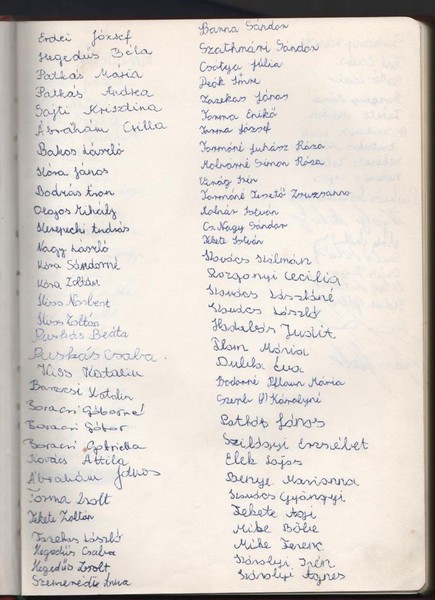 Erdei József
Hegedűs Béla
Patkás Mária
Patkás Andrea
Sajti Krisztina
Ábrahám Csilla
Bakos László
Kóra János
Bodrás Áron
Olajos Mihály
András
Nagy László
Kósa Sándorné
Kósa Zoltán
Kiss Norbert
Kiss Zoltán
Puskás Beáta
Puskás Csaba.
Kiss Katalin
Baracsi Katalin
Baracsi Gáborné
Baracsi Gábor
Baracsi Gabriella
Kovács Attila
Ábrahám János
Torma Zsolt
Fekete Zoltán
Fazekas László
Hegedűs Csaba
Hegedűs Zsolt
Szemerédi Anna
Barna Sándor
Szathmári Sándor
Csatya Júlia
Deák Imre
Fazekas János
Torma Enikő
Torma József
Tormáné Juhász Róza
Molnárné Simon Rózsa
Virág Irén
Tormáné Zsuzsanna
Molnár István
Cs. Nagy Sándor
Fekete István
Kovács Kálmán
Rozgonyi Cecilia
Kovács Lászlóné
Kovács László
Hadabás Judit
Pflum Mária
Dulka Éva
Bodorné Pflaum Mária
Károlyné
János
Szilágyi Erzsébet
Elek Lajos
Benye Marianna
Kovács Gyöngyi
Fekete Ági
Mike Böbe
Mike Ferenc
Károlyi Irén
Károlyi Ágnes